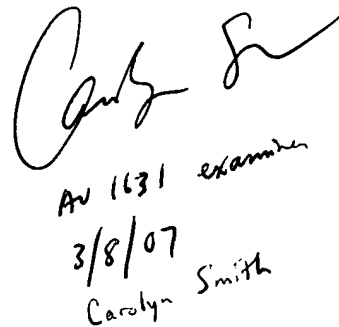 Carolyn S
AU 1631 examiner
3/8/07
Carolyn Smith